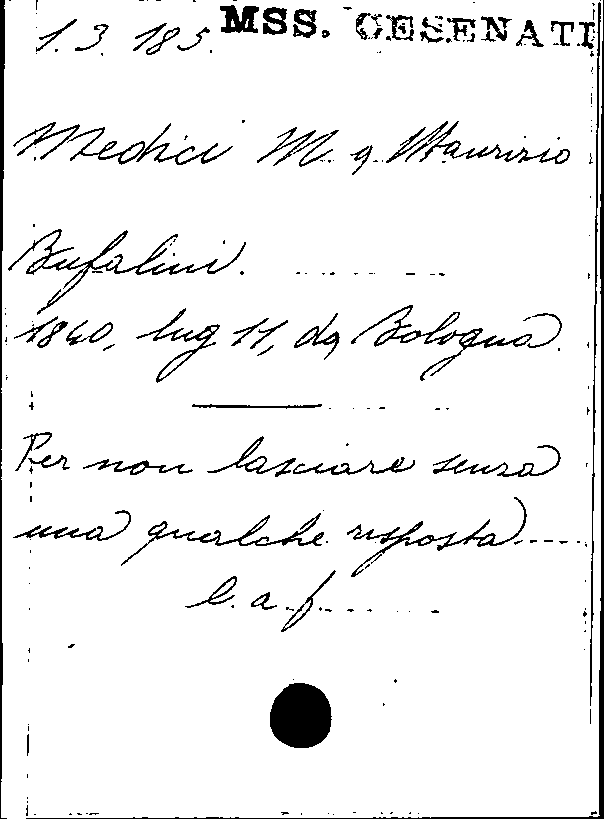 1.3.185. MSS. CESENATI
Medici M. a Maurizio
Bufalini.
1840, lug 11, da Bologna.
Per non lasciare senza
una qualche risposta....
l.a.f.